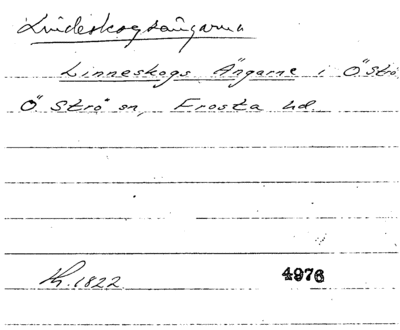 Lindeskogsängarna
Linneskogs Ängarne i Ö Strö
Ö Strö sn, Frosta hd.
Kh. 1822 4976